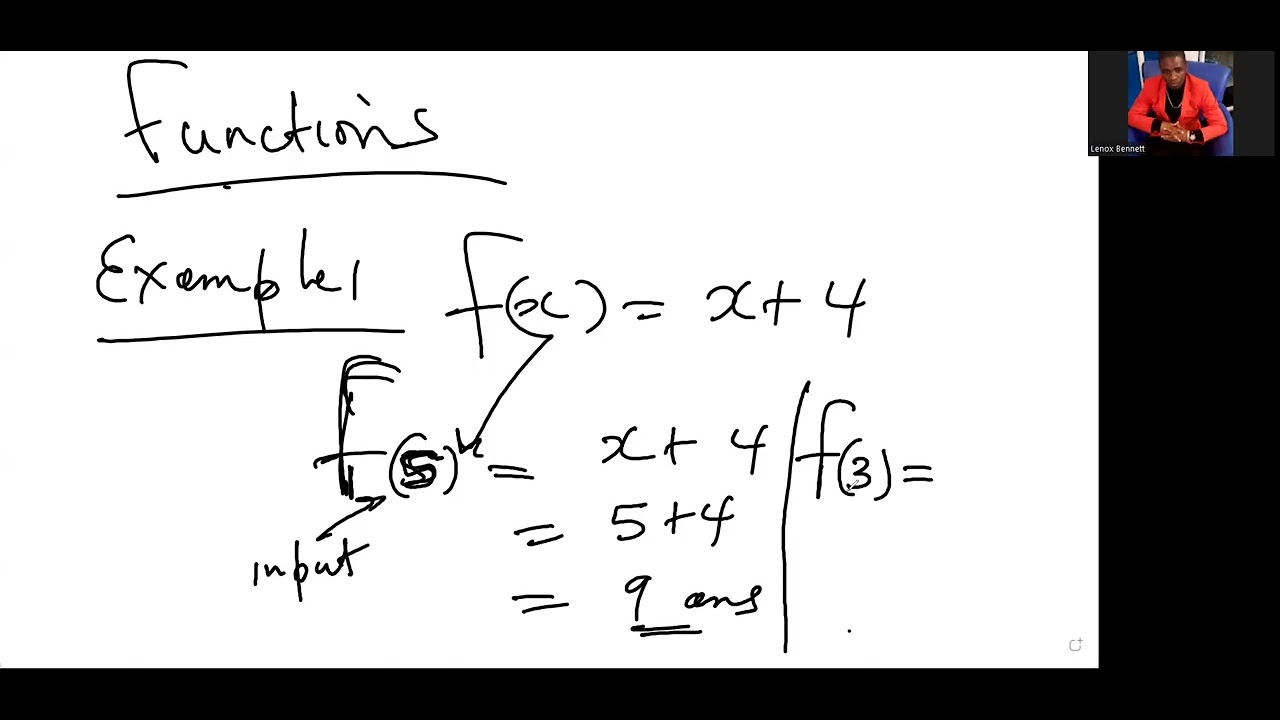 Functions
Example 1 f(x) = x + 4
f(5) = x + 4
= 5 + 4
= 9 ans
input
f(3) =
Lenox Bennett